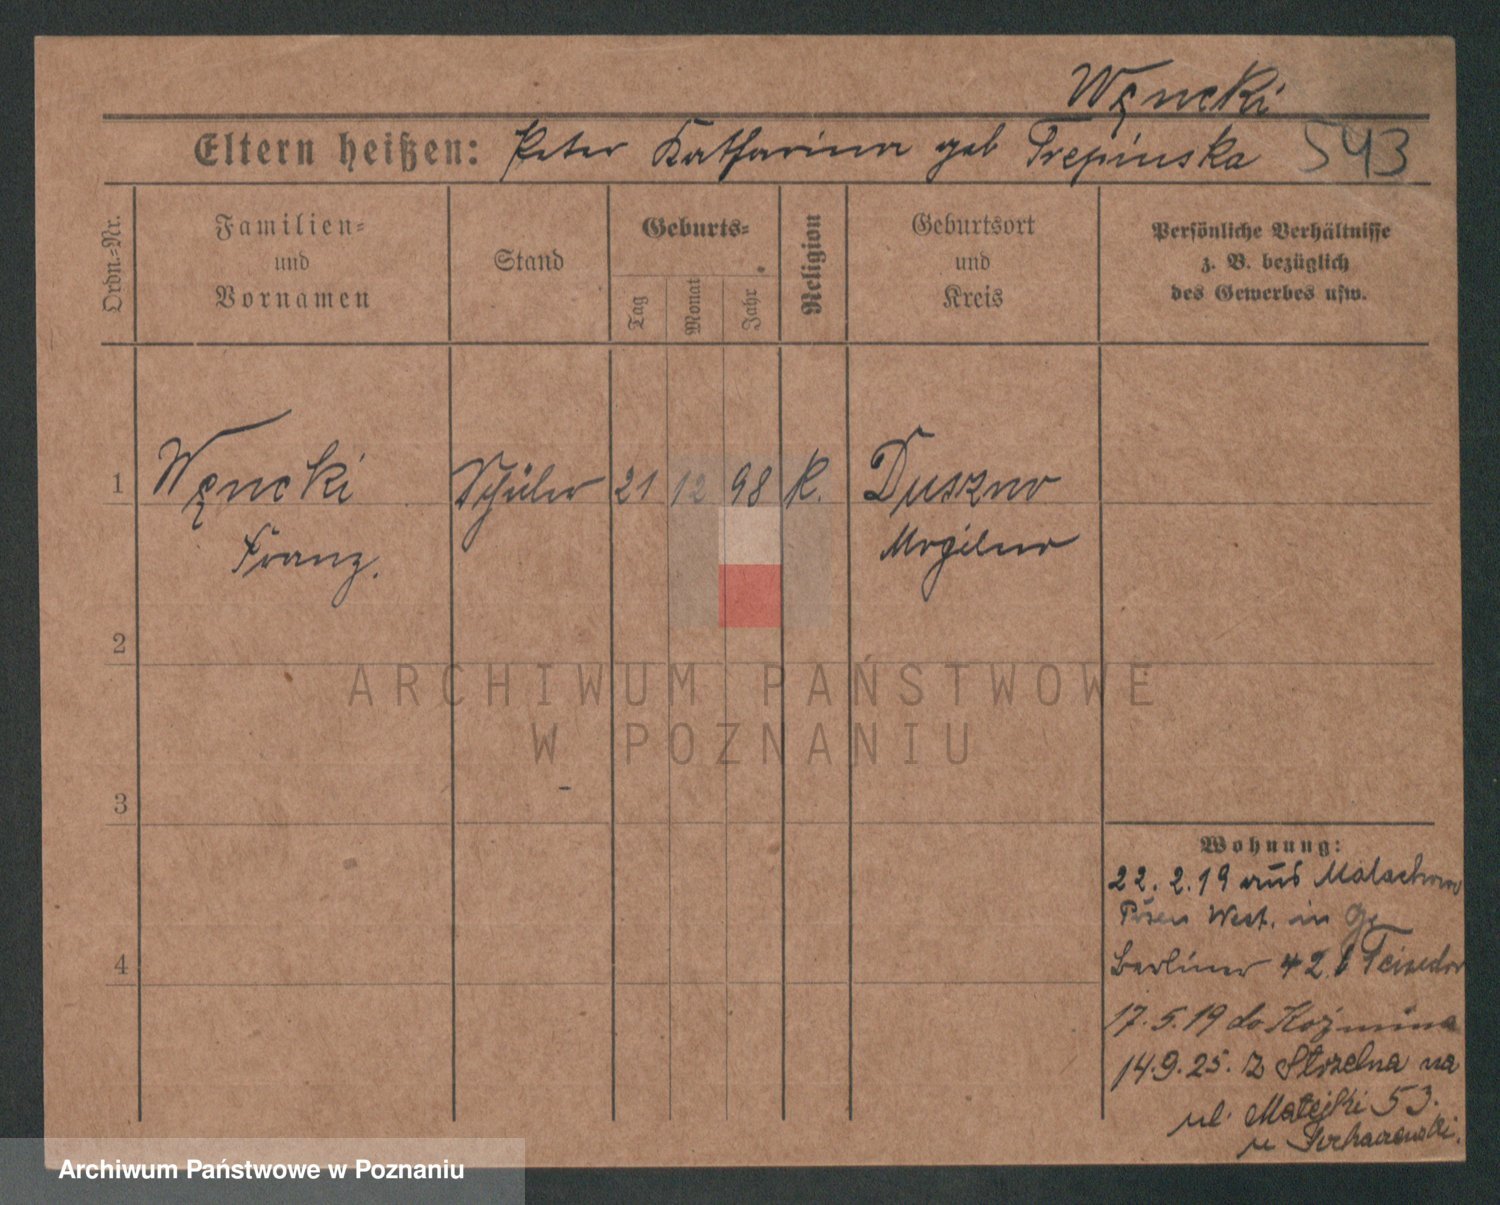 Węncki
Eltern heißen: Peter Katharina geb Trepinska 543
Ordn.-Nr.
Familien=
und
Vornamen
Stand
Geburts=
Tag
Monat
Jahr
Religion
Geburtsort
und
Kreis
Persönliche Verhältnisse
z. B. bezüglich
des Gewerbes usw.
1 Węncki Schüler 21 12 98 K. Duszno
Franz. Mogilno
2
ARCHIWUM PAŃSTWOWE
W POZNANIU
3
Wohnung:
22.2.19 aus Malachowo
Posen West. in
4
Berliner 42. b
17.5.19 do Koźmina
14.9.25. z Strzelna na
ul. Matejki 53.
u
Archiwum Państwowe w Poznaniu